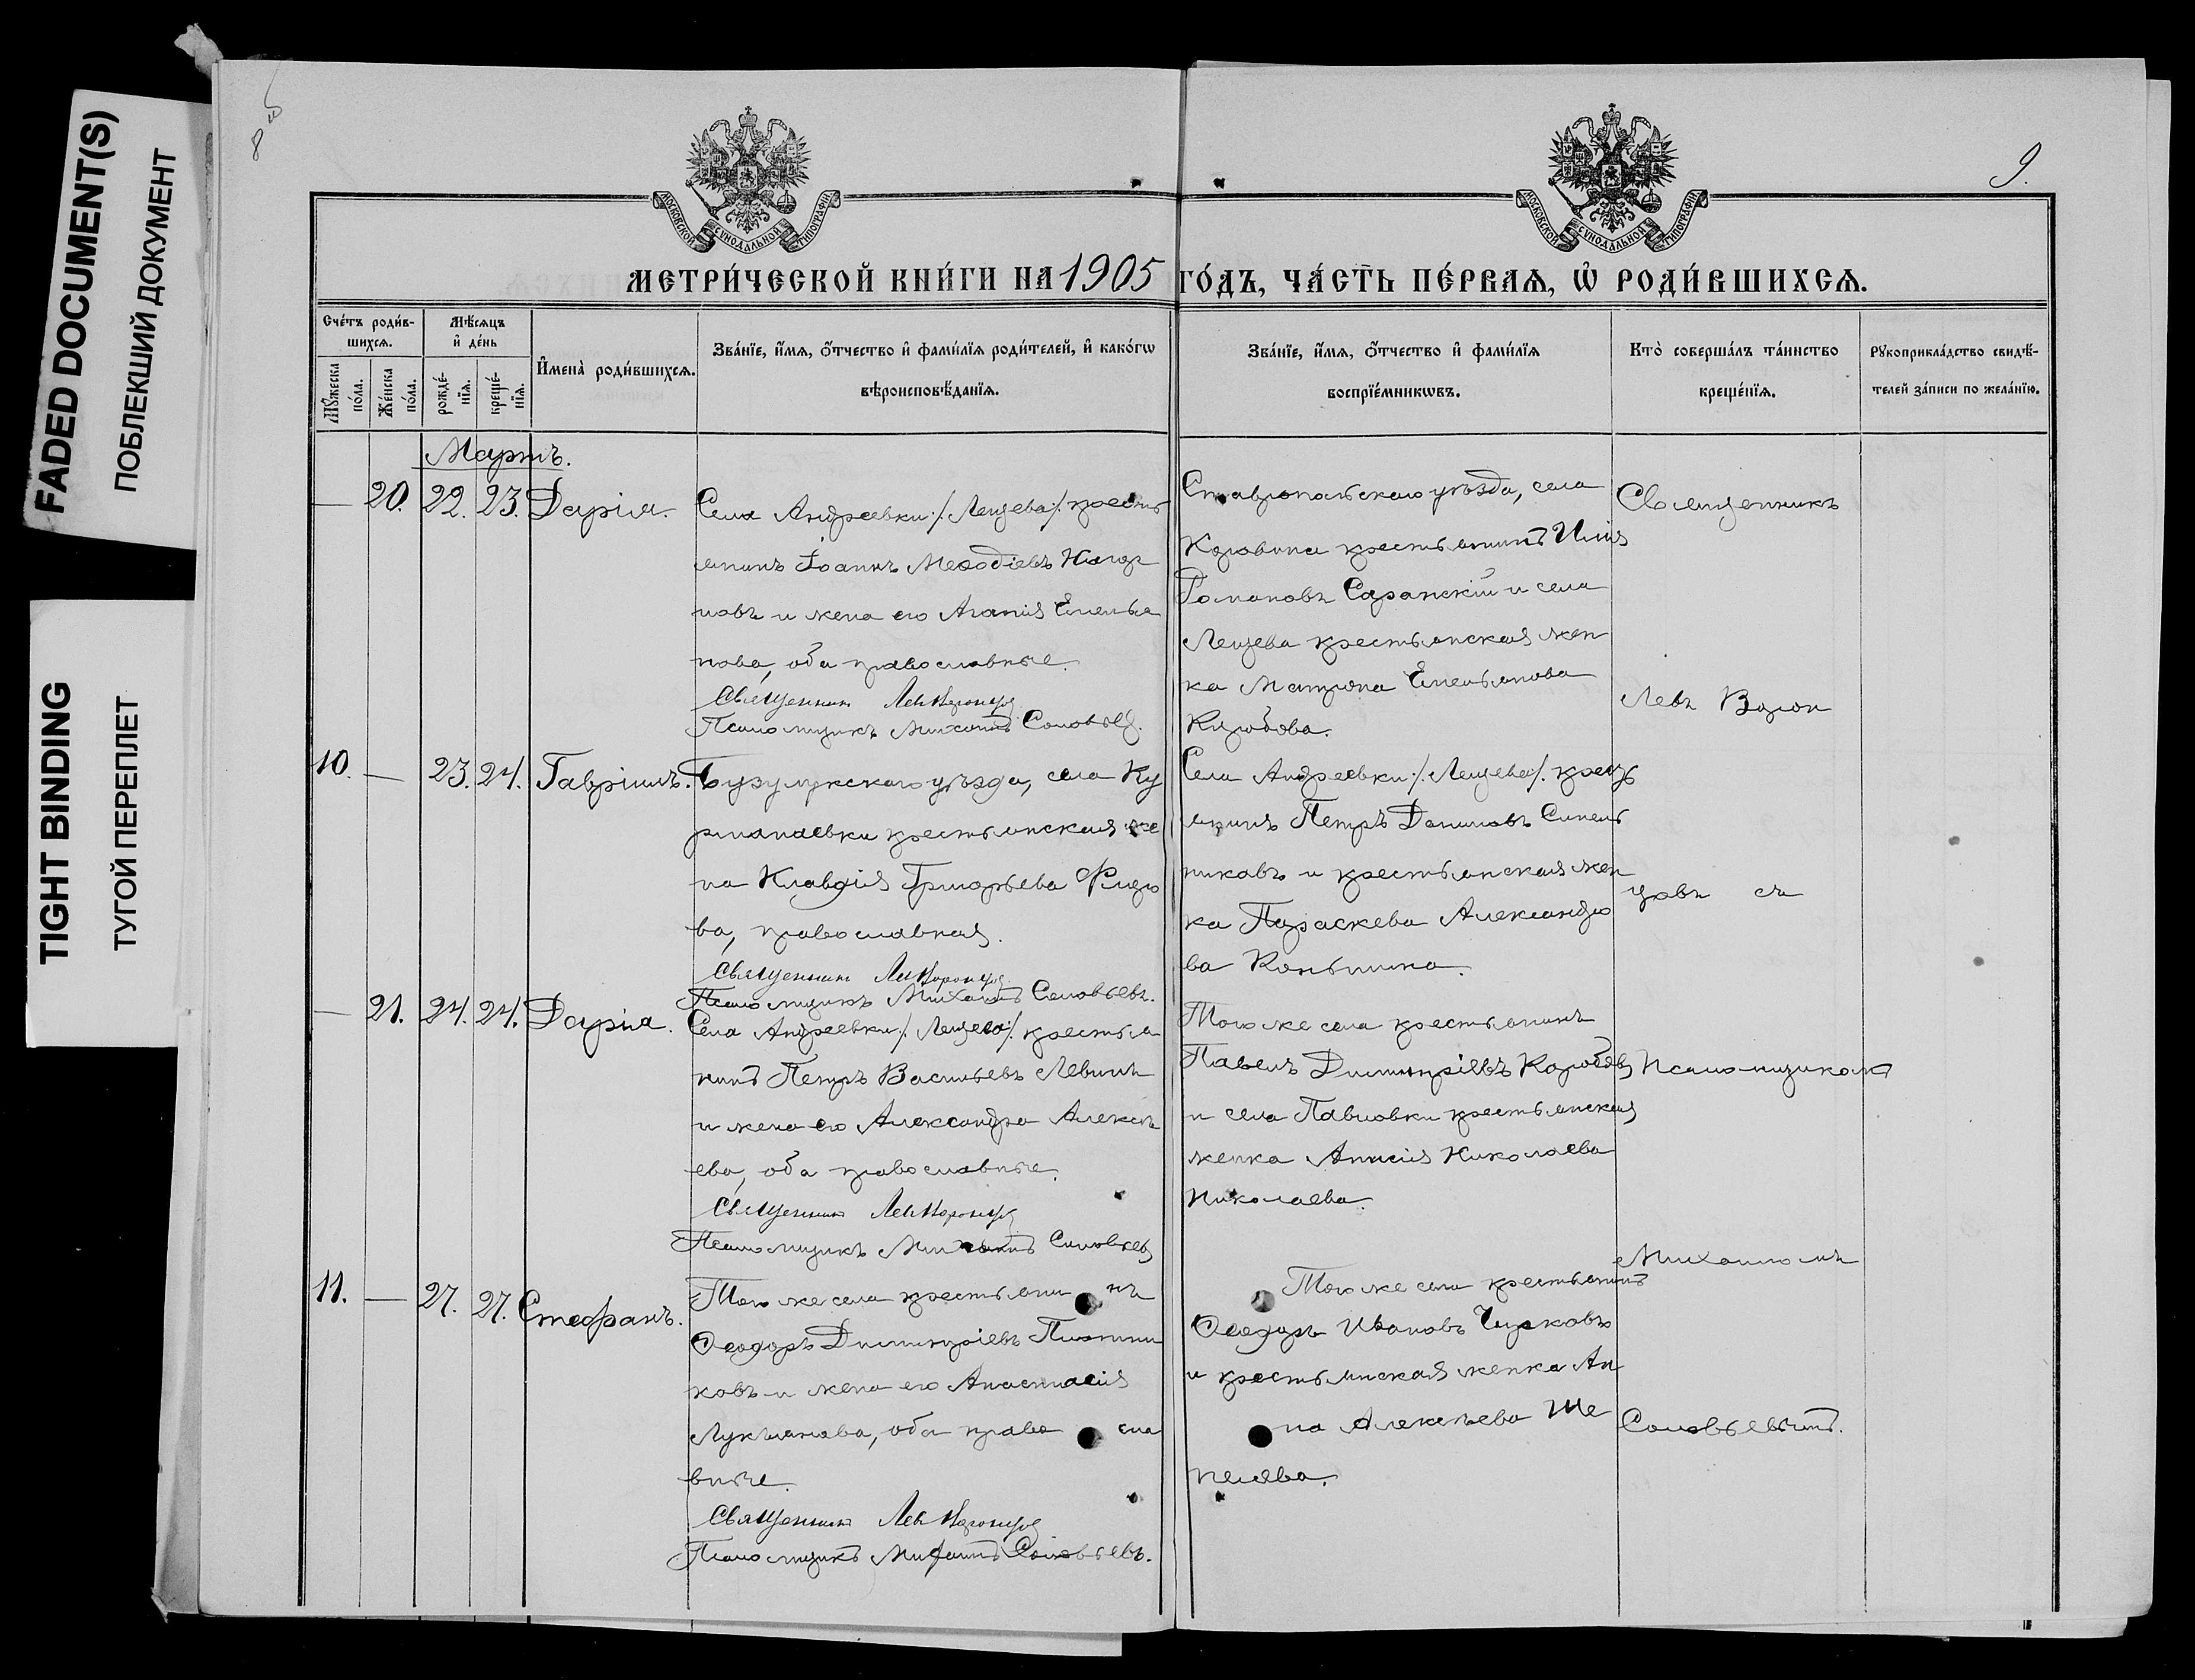 FADED DOCUMENT(S)
ПОБЛЕКШИЙ ДОКУМЕНТ
TIGHT BINDING
ТУГОЙ ПЕРЕПЛЕТ
8 об
9.
МОСКОВСКОЙ СѴНОДАЛЬНОЙ ТИПОГРАФІИ
МОСКОВСКОЙ СѴНОДАЛЬНОЙ ТИПОГРАФІИ
МЕТРИ́ЧЕСКОЙ КНИ́ГИ НА 1905 ГО́ДЪ, ЧА́СТЬ ПЕ́РВАѦ, Ѡ҆ РОДИ́ВШИХСѦ.
Сче́тъ роди́в-
шихсѧ.
Мꙋ́жеска по́ла.
Же́нска по́ла.
Мѣ́сѧцъ
и҆ де́нь
рожде́-нїѧ.
креще́-нїѧ.
И҆мена̀ роди́вшихсѧ.
Зва́нїе, и҆́мѧ, ѻ҆́тчество и҆ фами́лїѧ роди́телей, и҆ како́гѡ
вѣроисповѣ́данїѧ.
Зва́нїе, и҆́мѧ, ѻ҆́тчество и҆ фами́лїѧ
воспрїе́мникѡвъ.
Кто̀ соверша́лъ та́инство
креще́нїѧ.
Рꙋкоприкла́дство свидѣ́-
телей за́писи по жела́нїю.
Мартъ.
— 20. 22. 23. Дарія.
Села Андреевки ./. Лещева ./. крестья
янинъ Іоаннъ Меѳодіевъ
новъ и жена его Агапія Емелья
нова, оба православные.
Священникъ Левъ Воронцовъ
Псаломщикъ Михаилъ Соловьевъ.
Ставропольскаго уѣзда, села
крестьянинъ Илія
Романовъ Саранскій и села
Лещева крестьянская жен
ка Матрона Емельянова
Коробова.
10. — 23. 24. Гавріилъ.
Бузулукскаго уѣзда, села Ку
рманаевки крестьянская же
на Клавдія Григорьева
ва, православная.
Священникъ Левъ Воронцовъ
Псаломщикъ Михаилъ Соловьевъ.
Села Андреевки ./. Лещева ./. кресть
янинъ Петръ Даниловъ Синель
никовъ и крестьянская жен
ка Параскева Александро
ва Коньшина.
— 21. 24. 24. Дарія.
Села Андреевки ./. Лещева ./. крестья
нинъ Петръ Васильевъ Левинъ
и жена его Александра Алексѣ
ева, оба православные.
Священникъ Левъ Воронцовъ
Псаломщикъ Михаилъ Соловьевъ
Того же села крестьянинъ
Павелъ Димитріевъ Коробовъ
и села Павловки крестьянская
женка Анисія Николаева
Николаева.
11. — 27. 27. Стефанъ.
Того же села крестьянинъ
Ѳеодоръ Димитріевъ Плотни
ковъ и жена его Анастасія
Лукьянова, оба правосла
вные.
Священникъ Левъ Воронцовъ
Псаломщикъ Михаилъ Соловьевъ.
Того же села крестьянинъ
Ѳеодоръ Ивановъ Чурковъ
и крестьянская женка Ан
на Алексѣева Ше
пелева.
Священникъ
Левъ Ворон
цовъ съ
Псаломщикомъ
Михаиломъ
Соловьевымъ.